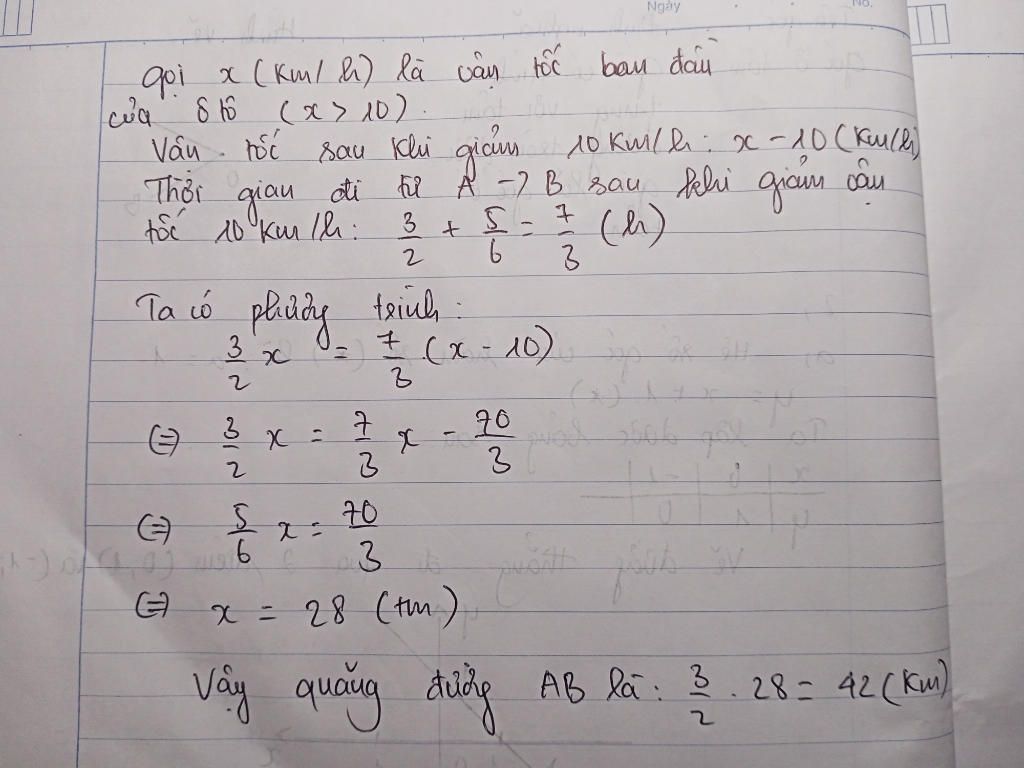 Ngày No.
gọi x (km/h) là vận tốc ban đầu
của ô tô (x > 10).
Vận tốc sau khi giảm 10 km/h: x - 10 (km/h)
Thời gian đi từ A → B sau khi giảm vận
tốc 10 km/h: 3/2 + 5/6 = 7/3 (h)
Ta có phương trình:
3/2 x = 7/3 (x - 10)
⇔ 3/2 x = 7/3 x - 70/3
⇔ 5/6 x = 70/3
⇔ x = 28 (tm)
Vậy quãng đường AB là: 3/2 . 28 = 42 (km)